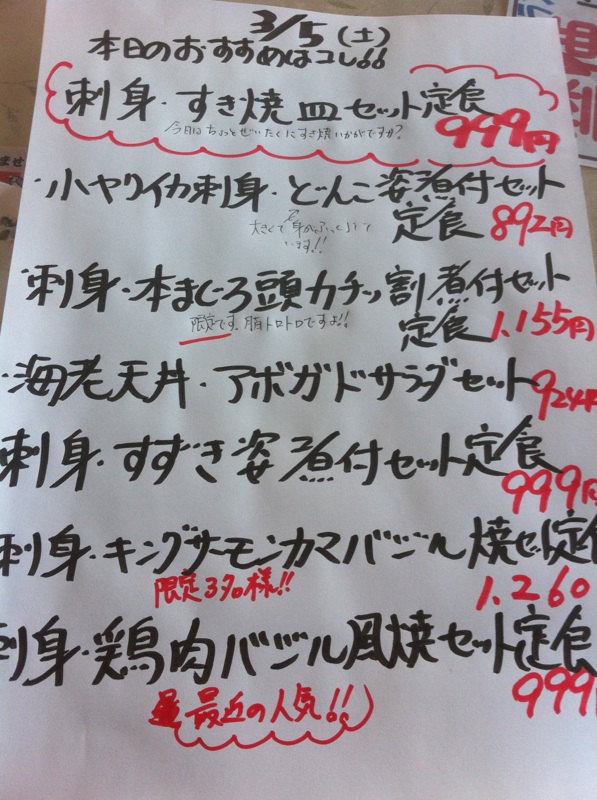 3/5(土)
本日のおすすめはコレ!!
刺身・すき焼皿セット定食
今日はちょっとぜいたくにすき焼いかがですか?
999円
・小ヤリイカ刺身・どんこ姿煮付セット
定食 892円
大きくて身がふっくらして
います!!
刺身・本まぐろ頭カチッ割煮付セット
定食 1.155円
限定です。脂トロトロですよ!!
・海老天丼・アボガドサラダセット
924円
刺身・すずき姿煮付セット定食
999円
刺身・キングサーモンカマバジル焼セット定食
限定3名様!!
1.260
刺身・鶏肉バジル風焼セット定食
999円
最近の人気!!
ませ